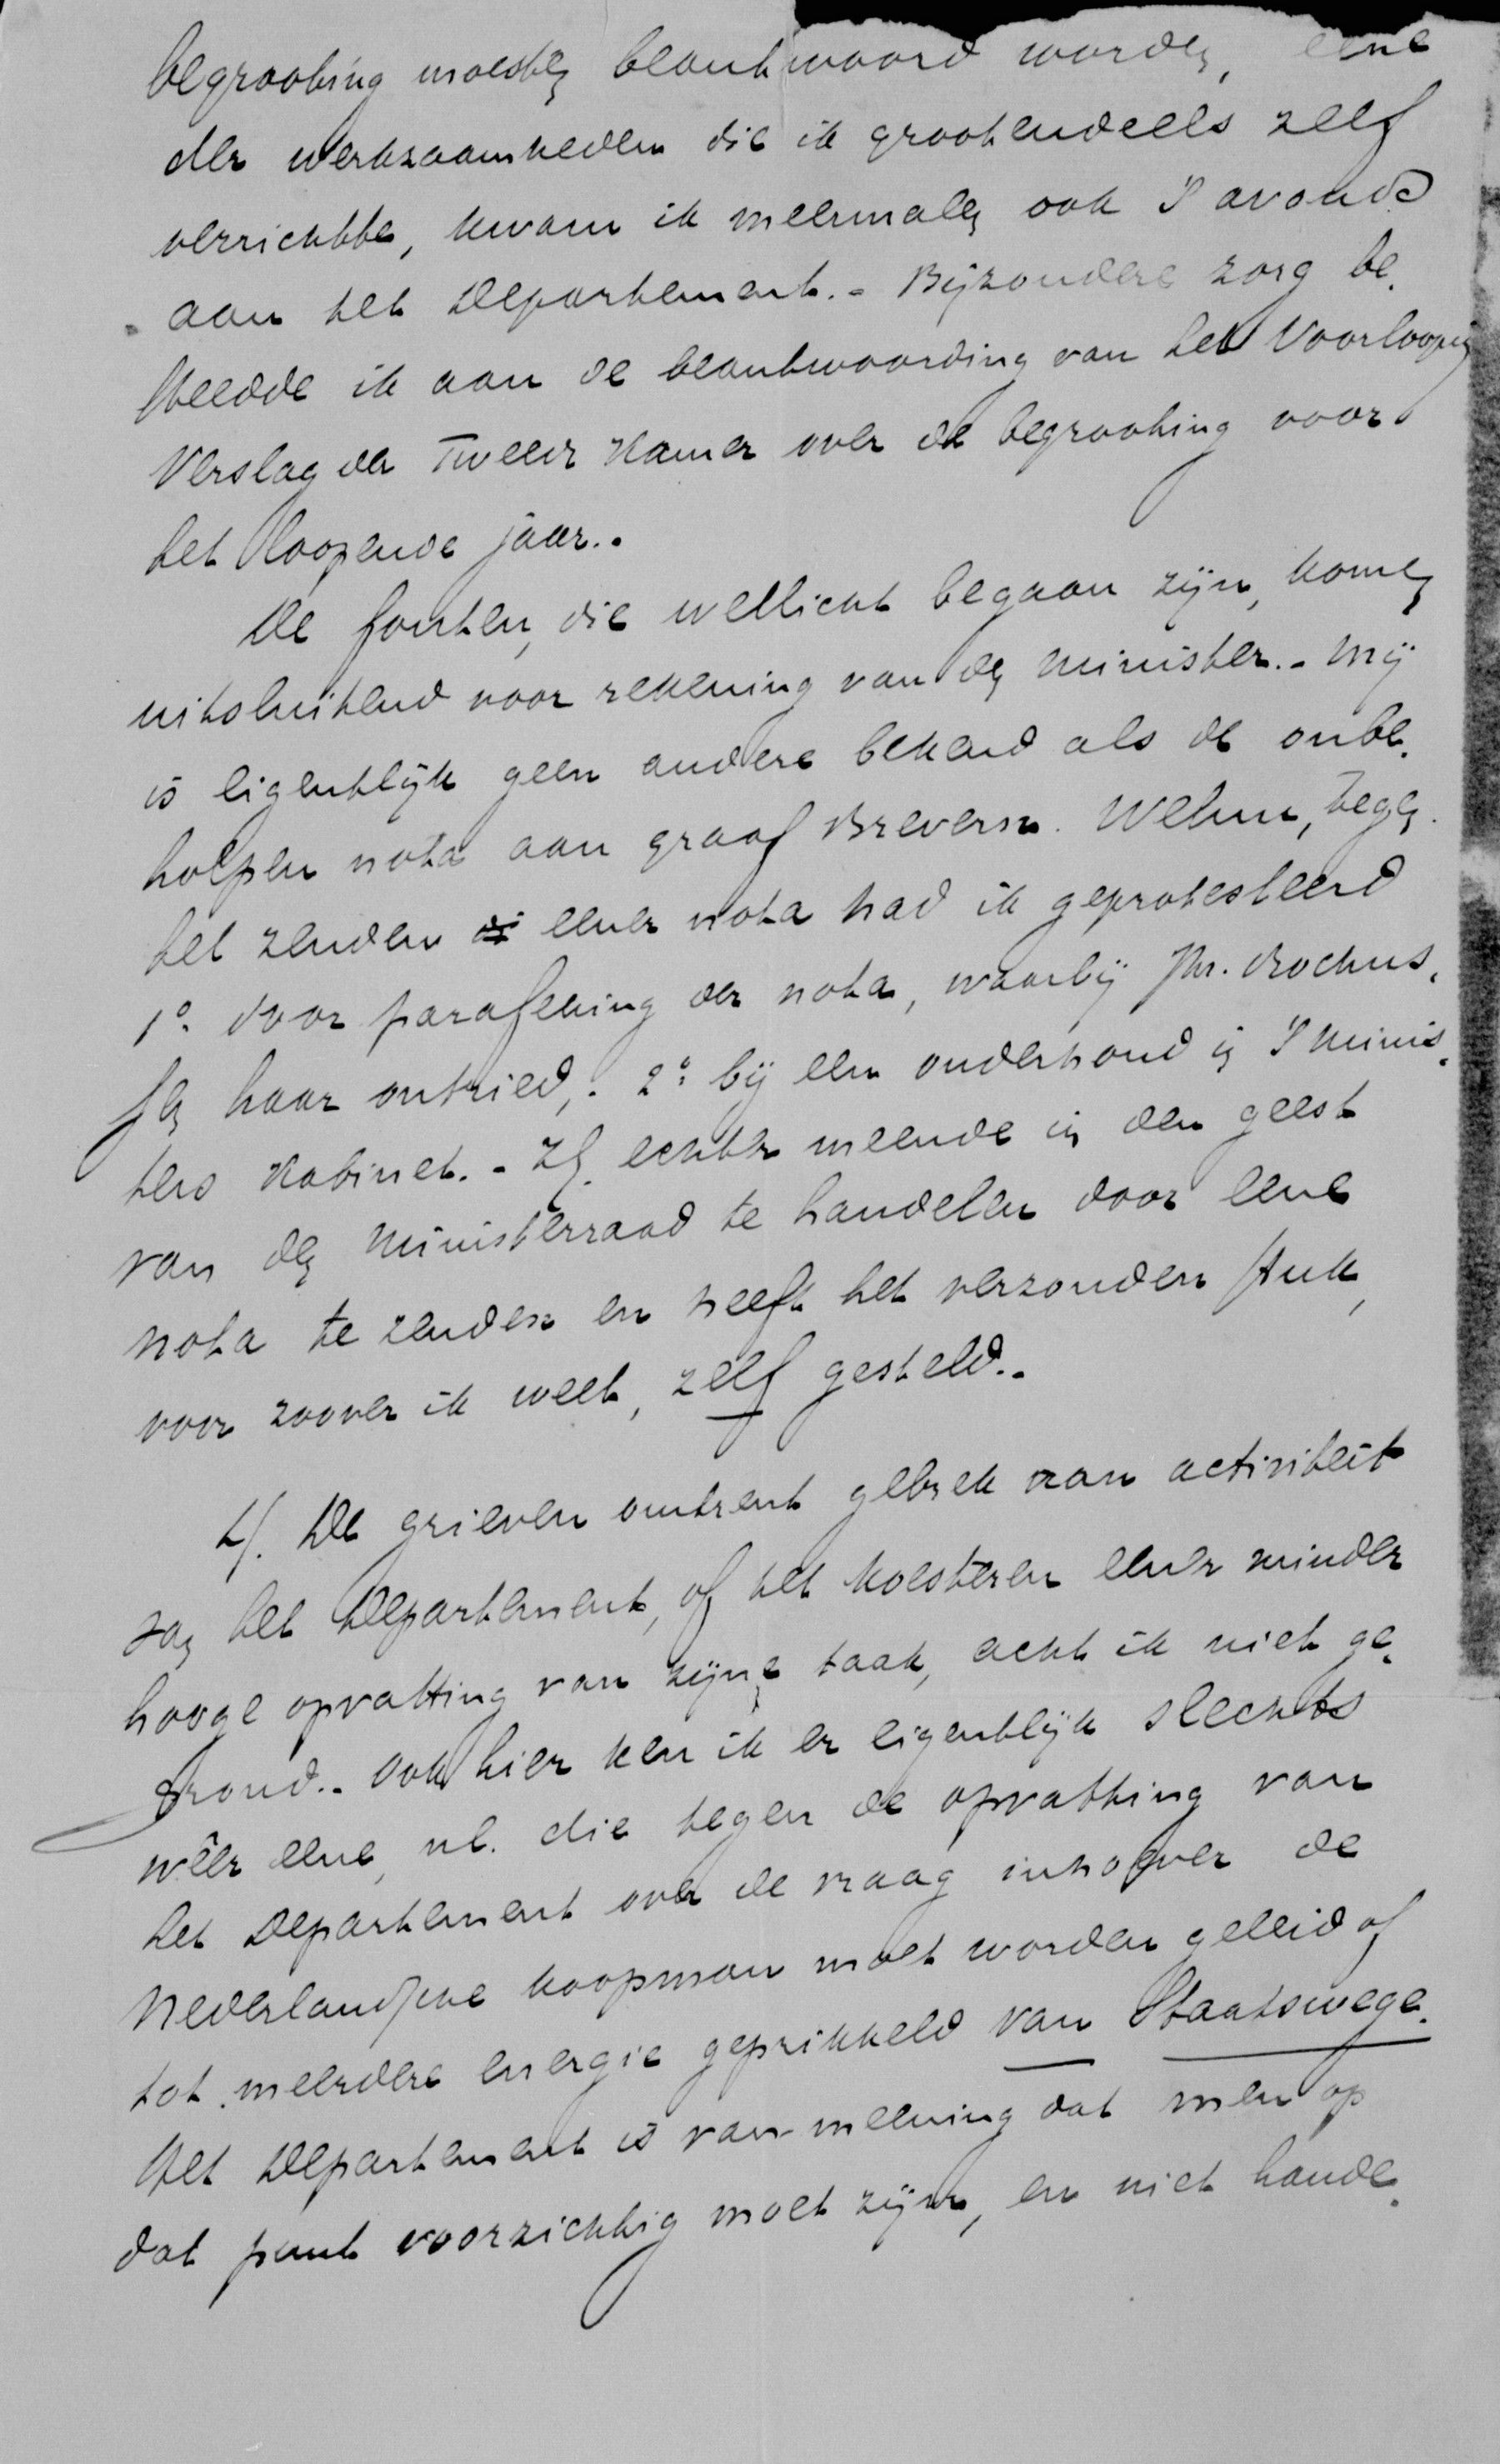 begrooting moesten beantwoord worden, eene
der werkzaamheden die ik grootendeels zelf
verrichtte, kwam ik meermalen ook 's avonds
aan het Departement.- Bijzondere zorg be-
steedde ik aan de beantwoording van het Voorloopig
Verslag der Tweede Kamer over de begrooting voor
het loopende jaar..
De fouten, die wellicht begaan zijn, komen
uitsluitend voor rekening van den Minister.- Mij
is eigentlijk geen andere bekend als de onbe-
holpen nota aan graaf Brevern. Welnu, tegen
het zenden eener nota had ik geprotesteerd
1º. door parafeering der nota, waarbij Jhr. Rochus-
sen haar ontried,. 2º. bij een onderhoud in 's Minis-
ters Kabinet.- ZE. echter meende in den geest
van den Ministerraad te handelen door eene
nota te zenden en heeft het verzonden stuk,
voor zoover ik weet, zelf gesteld..
4). De grieven omtrent gebrek aan activiteit
van het Departement, of het koesteren eener minder
hooge opvatting van zijne taak, acht ik niet ge-
grond.. Ook hier ken ik er eigentlijk slechts
wêer eene, nl. die tegen de opvatting van
het Departement over de vraag inhoever de
Nederlandsche koopman moet worden geleid of
tot meerdere energie geprikkeld van Staatswege.
Het Departement is van meening dat men op
dat punt voorzichtig moet zijn, en niet hande-